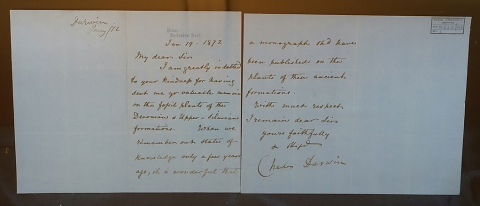 Darwin
Jan 19 - 1872
My dear Sir
I am greatly indebted
to your kindness for having
sent me yr valuable memoir
on the fossil plants of the
Devonian & Upper-Silurian
formations. When we
remember our state of
knowledge only a few years
ago, it is wonderful that
a monograph shd have
been published on the
plants of these ancient
formations.
With much respect,
I remain dear Sir
yours faithfully
Charles Darwin